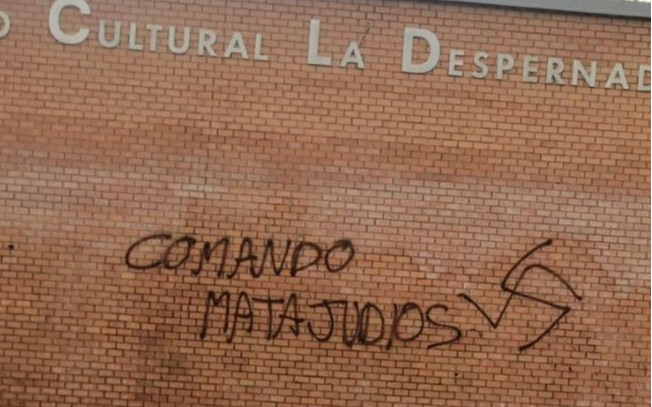 CULTURAL LA DESPERNAD
COMANDO
MATAJUDIOS